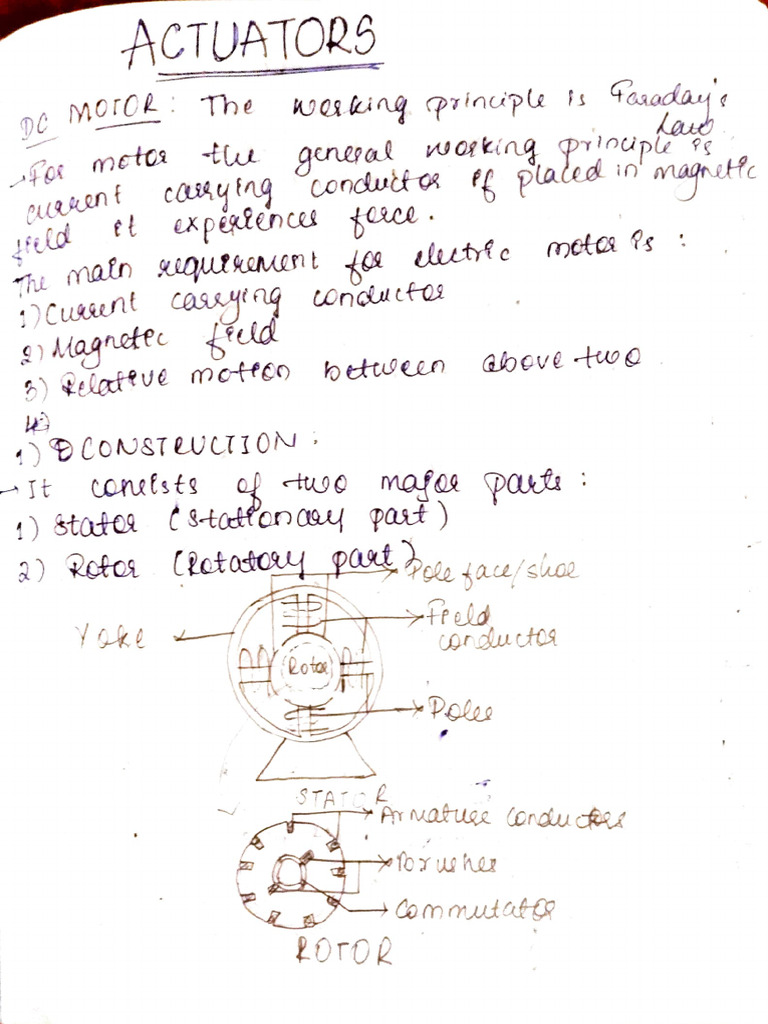 ACTUATORS
DC MOTOR : The working principle is Faraday's
Law
→ For motor the general working principle is
current carrying conductor if placed in magnetic
field it experiences force.
The main requirement for electric motor is :
1) Current carrying conductor
2) Magnetic field
3) Relative motion between above two
4)
1) CONSTRUCTION :
→ It consists of two major parts :
1) Stator (Stationary part)
2) Rotor (Rotatory part)
Pole face/shoe
Yoke
Field
conductor
Rotor
Poles
STATOR
Armature conductors
Brushes
Commutator
ROTOR